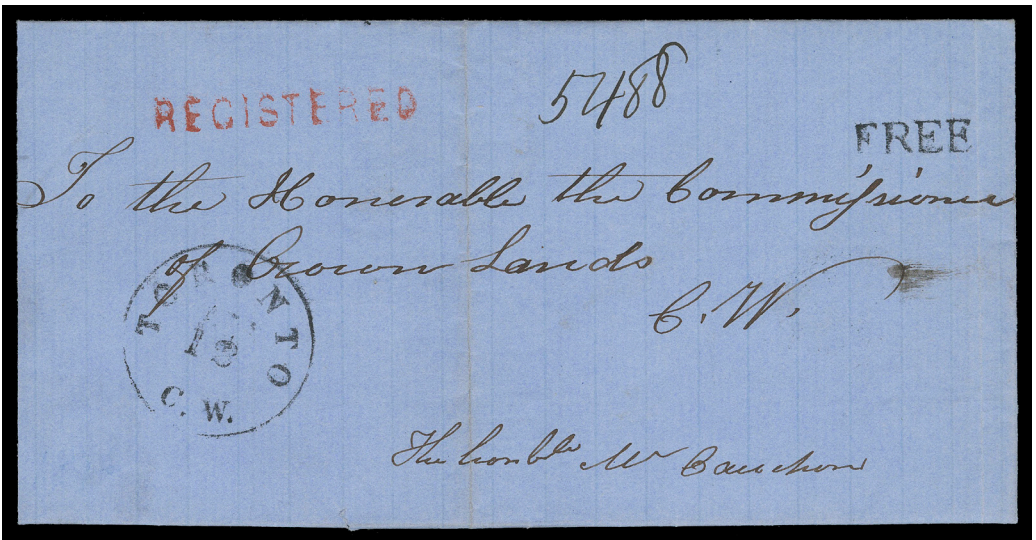 5488
REGISTERED
FREE
To the Honorable the Commissioner
of Crown Lands
C. W.
TORONTO
C. W.
The honble Mr Cauchon